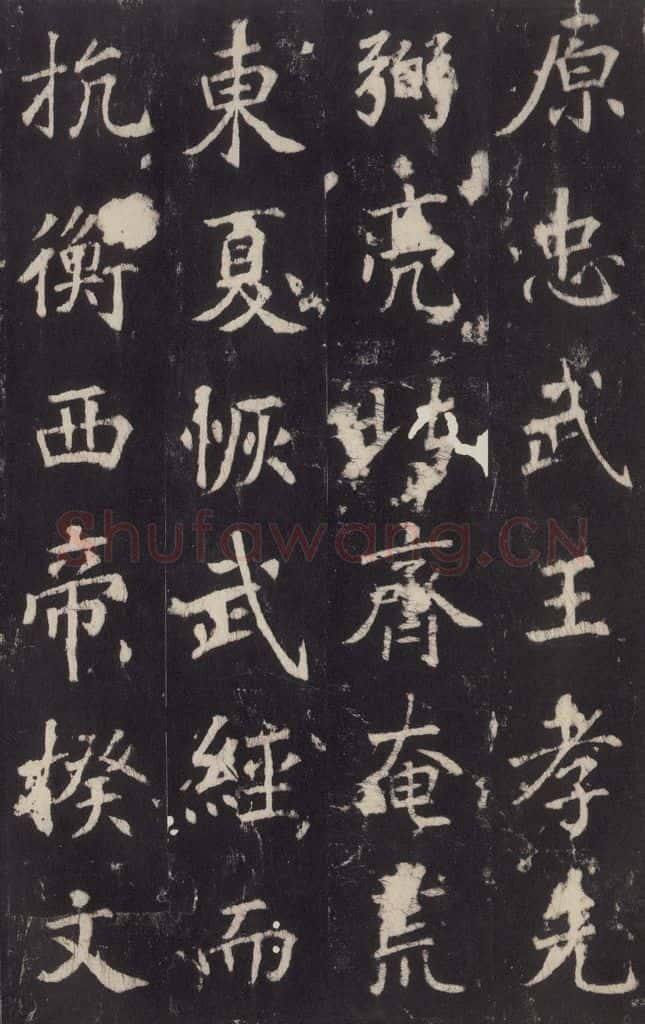 原忠武王孝先
弼亮跨齊奄荒
東夏恢武經而
抗衡西帝揆文
Shufawang.CN